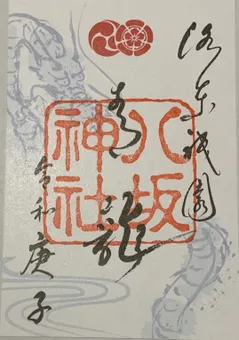 洛東祇園
八坂
青龍
神社
令和庚子